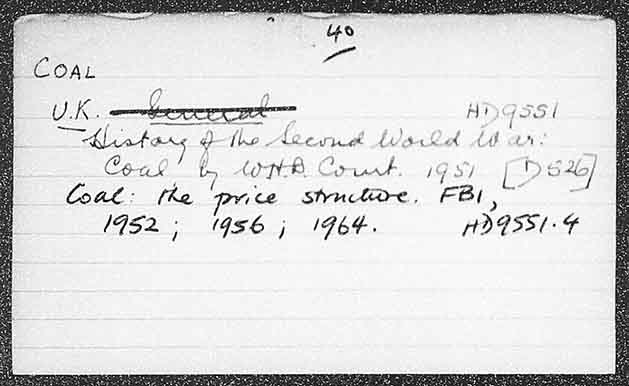 40
COAL
U.K. General HD9551
History of the Second World War:
Coal by W.H.B. Court. 1951 [D526]
Coal: the price structure. FBI,
1952; 1956; 1964. HD9551.4